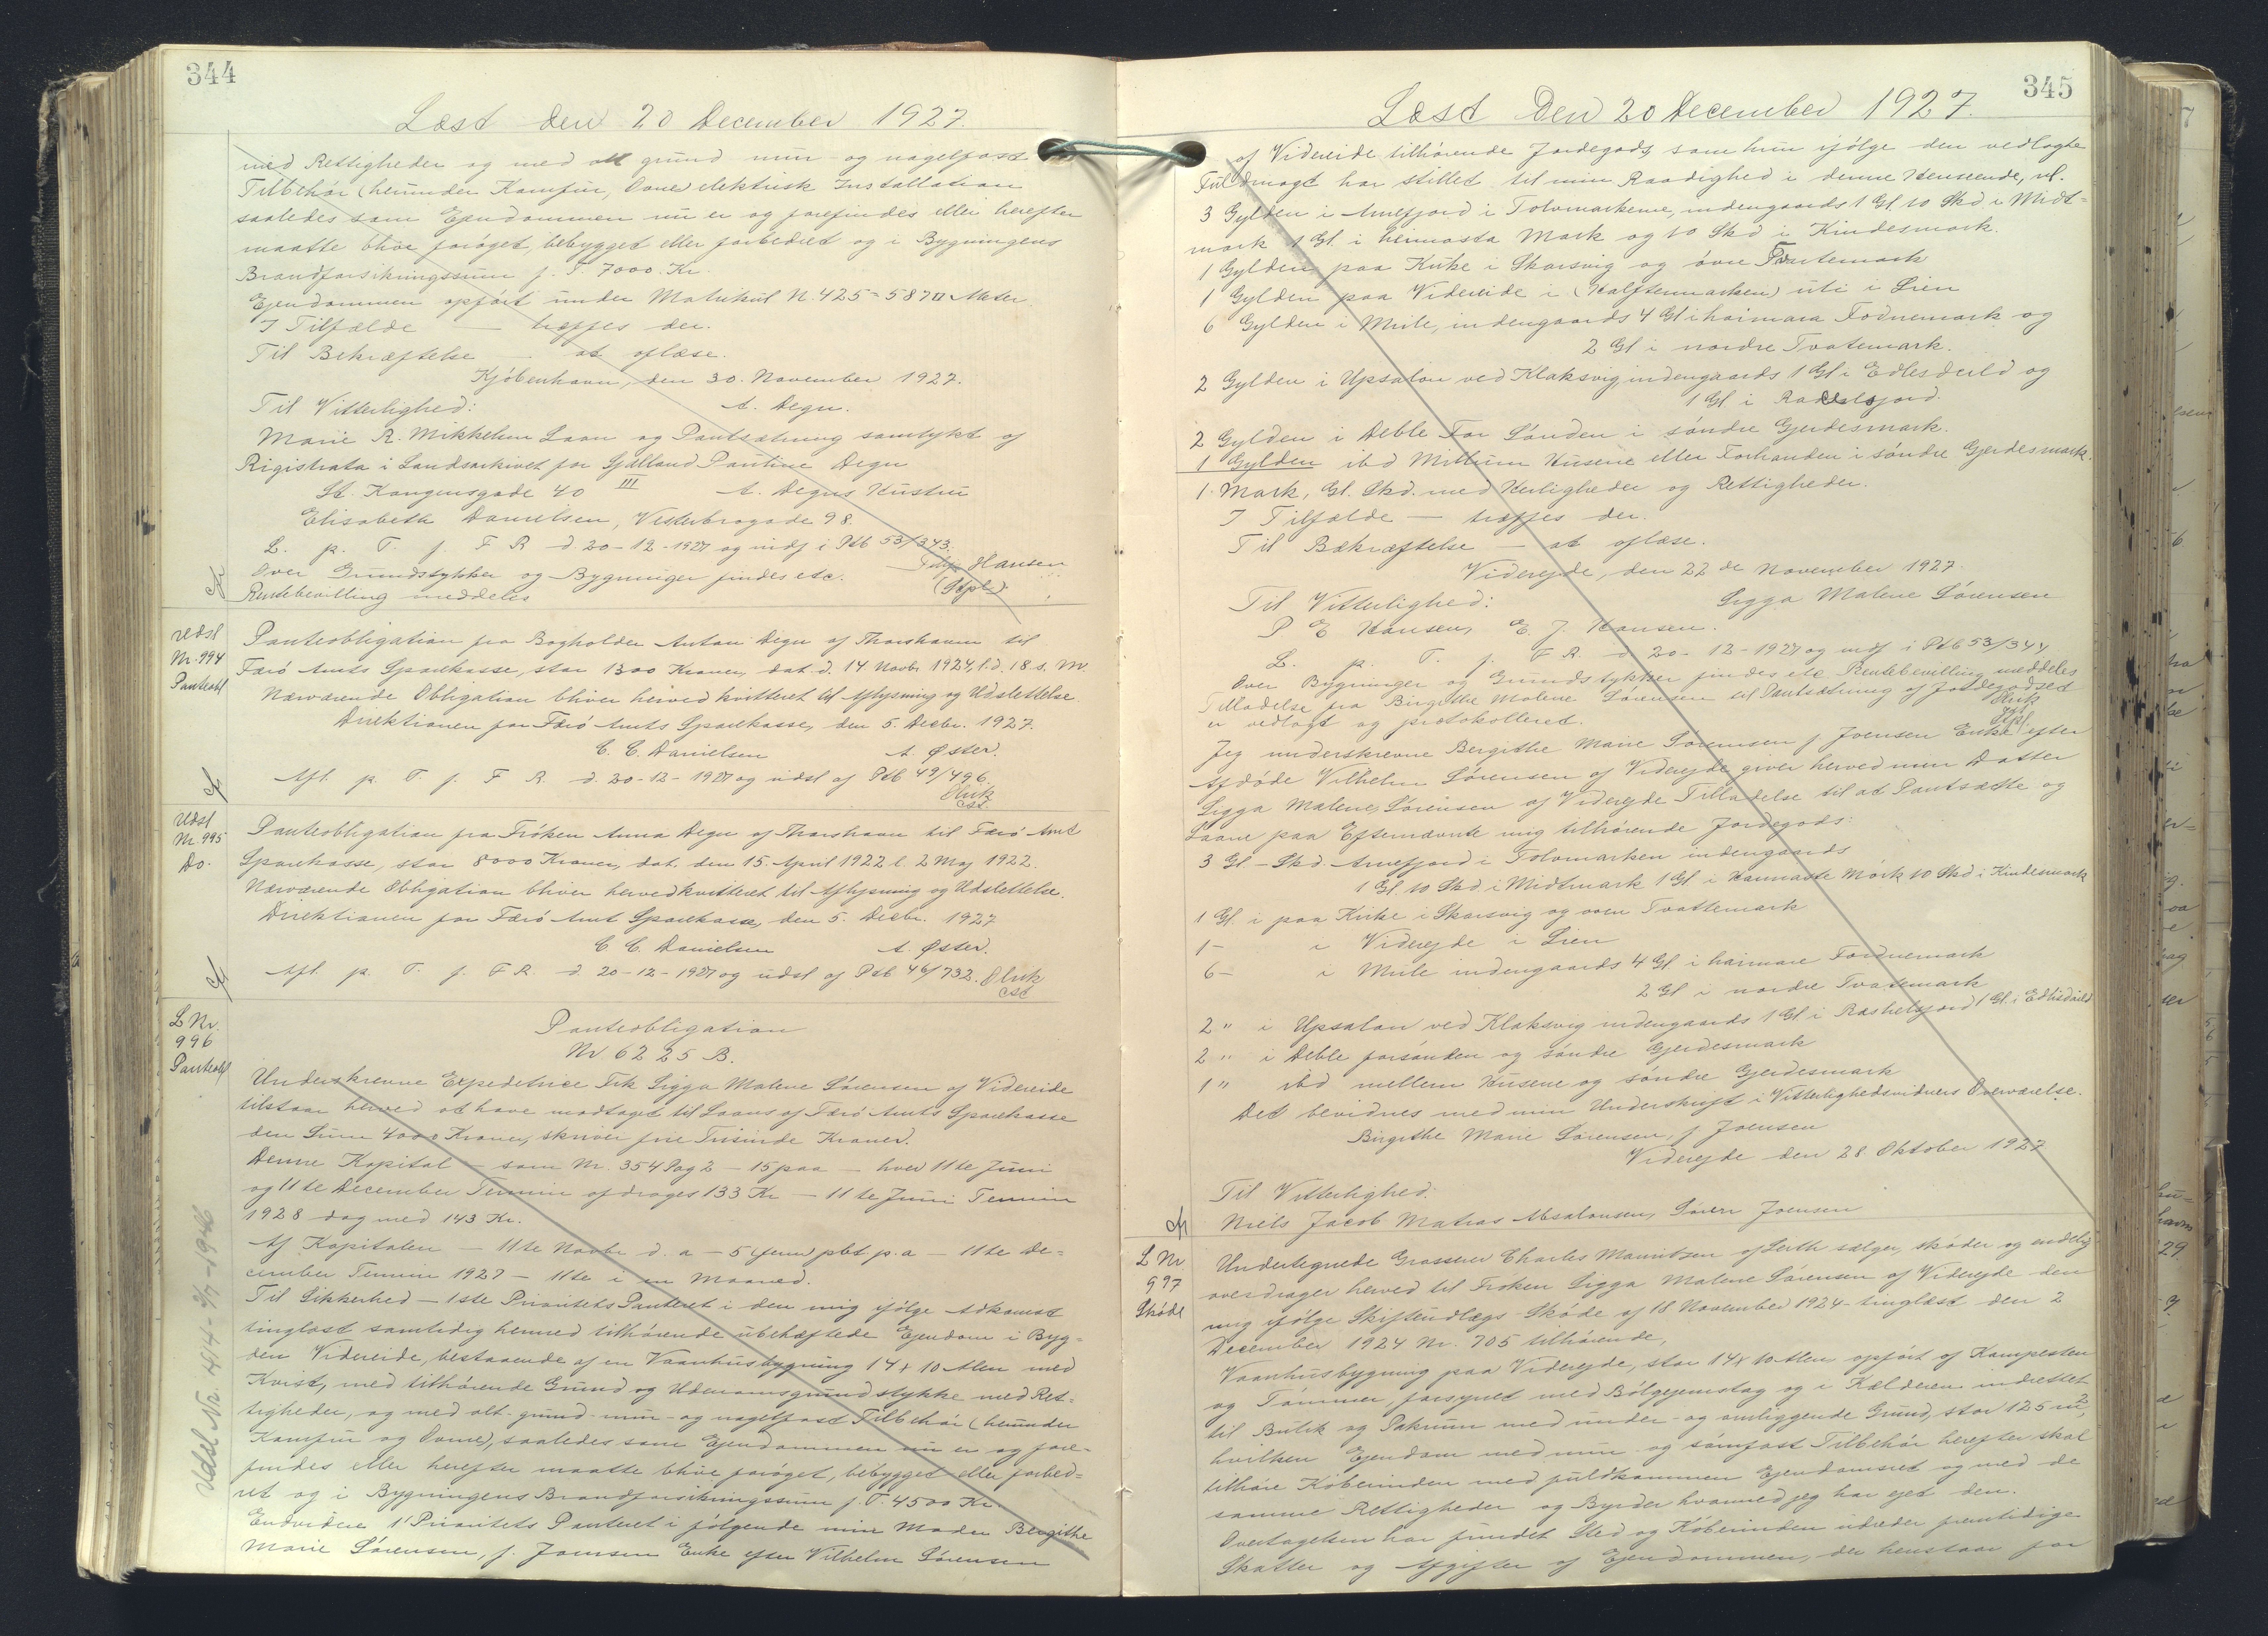 344
Læst den 20 December 1927.
med Rettigheder og med alt grund mur- og nagelfast
Tilbehör (herunder Komfur, Ovne) elektrisk Installation
saaledes som Ejendommen nu er og forefindes eller herefter
maatte blive forøget, bebygget eller forbedret og i Bygningens
Brandforsikringssum f. T. 7000 Kr.
Ejendommen opført under Matrikul N. 425 = 587 □ Meter.
I Tilfælde — træffes der.
Til Bekræftelse — at aflæse.
Kjöbenhavn, den 30. November 1927.
Til Vitterlighed: A. Degn.
Marie R. Mikkelsen Laan og Pantsætning samtykt af
Rigistrata i Landsarkivet for Sjælland Pauline Degn
St. Kongensgade 40 III A. Degns Hustru
Elisabeth Danielsen, Vesterbrogade 98.
L. p. T. f. F R d. 20-12-1927 og indf i Ptb 53/343.
Over Grundstykker og Bygninger findes etc. Hansen
Rentebevilling meddeles (Sept)
Udsl
Nr. 994
Panteobl
Panteobligation fra Bogholder Anton Degn af Thorshavn til
Færö Amts Sparekasse, stor 1300 Kroner, dat. d. 14 Novbr 1924, l. d. 18. s. M.
Nærværende Obligation bliver herved kvitteret til Aflysning og Udslettelse.
Direktionen for Færö Amts Sparekasse, den 5. Decbr. 1927.
C. C. Danielsen A. Øster.
Afl. p. T. f. F R d. 20-12-1927 og udsl af Ptb 49/496.
Udsl
Nr. 995
Do.
Panteobligation fra Fröken Anna Degn af Thorshavn til Færö Amt
Sparekasse, stor 8000 Kroner, dat. den 15. April 1922 l. 2 Maj 1922.
Nærværende Obligation bliver herved kvitteret til Aflysning og Udslettelse.
Direktionen for Færö Amt Sparekasse, den 5. Decbr. 1927
C. C. Danielsen A. Øster.
Afl. p. T. f. F R. d. 20-12-1927 og udsl af Ptb 46/732.
L Nr.
996
Panteobl
Panteobligation
Nr 6225 B.
Underskrevne Expeditrice Frk Sigga Malene Sørensen af Videreide
tilstaar herved at have modtaget til Laans af Færö Amts Sparekasse
den Sum 4000 Kroner, skriver fire Tusinde Kroner.
Denne Kapital — som Nr. 354 Pag 2 — 15 paa — hver 11te Juni
og 11te December Termin afdrages 133 Kr — 11te Juni Termin
1928 dog med 143 Kr.
Af Kapitalen — 11te Novbr d. a — 5 fem pct p. a — 11te De-
cember Termin 1927 — 11te i en Maaned.
Til Sikkerhed — 1ste Prioritets Panteret i den mig ifølge Adkomst
tinglæst samtidig hermed tilhørende ubehæftede Ejendom i Byg-
den Videreide, bestaaende af en Vaanhusbygning 14 x 10 Alen med
Kvist, med tilhørende Grund og Udenomsgrundstykke med Ret-
tigheder, og med alt grund- mur- og nagelfast Tilbehør (herunder
Komfur og Ovne), saaledes som Ejendommen nu er og fore-
findes eller herefter maatte blive forøget, bebygget eller forbed-
ret og i Bygningens Brandforsikringssum f. T. 4500 Kr.
Endvidere 1' Prioritets Panteret i følgende min Moder Bergithe
Marie Sørensen, f. Joensen Enke efter Vilhelm Sørensen
Udsl Nr. 414 - 9/7 - 1946
345
Læst Den 20 December 1927.
af Videreide tilhørende Jordegods, som hun ifølge den vedlagte
Fuldmagt har stillet til min Raadighed i denne Henseende, nl.
3 Gylden i Arnefjord i Tolvmarkerne, indengaards 1 Gl. 10 Skd i Midt-
mark 1 Gl. i heimasta Mark og 10 Skd i Kindesmark.
1 Gylden paa Kirke i Skarsvig og övre Tvartemark
1 Gylden paa Videreide i (Halftenmarken) uti i Lien
6 Gylden i Mule, indengaards 4 Gl i haimara Fodnemark og
2 Gl i nordre Tvatemark.
2 Gylden i Upsalon ved Klaksvig, indengaards 1 Gl i Edlisdeild og
1 Gl i Rakelsjord.
2 Gylden i Deble For Sønden i søndre Gjerdesmark.
1 Gylden ibd Millum Husene eller Forhanden i søndre Gjerdesmark.
1 Mark, Gl. Skd. med Herligheder og Rettigheder.
I Tilfælde — træffes der.
Til Bekræftelse — at aflæse.
Viderejde, den 22de November 1927.
Til Vitterlighed: Sigga Malene Sørensen
P E Hansen, E. J. Hansen.
L. p. T. f. F R. d 20-12-1927 og indf i Ptb 53/344
Over Bygninger og Grundstykker findes etc Rentebevilling meddeles
Tilladelse fra Birgithe Malene Sørensen til Pantsætning af Jordegodset
er vedlagt og protokolleret.
Jeg underskrevne Bergithe Marie Sørensen f. Joensen Enke efter
Afdöde Vilhelm Sørensen af Viderejde giver herved min Datter
Sigga Malene Sørensen af Viderejde Tilladelse til at Pantsætte og
Laane paa Efternævnte mig tilhørende Jordegods:
3 Gl - Skd. Arnefjord i Tolvmarken indengaards
1 Gl. 10 Skd i Midtmark 1 Gl i Haimaste Mark 10 Skd i Kindesmark
1 Gl. i paa Kirke i Skarsvig og oven Tvattemark
1 - i Viderejde i Lien
6 - i Mule indengaards 4 Gl i haimare Fordnemark
2 Gl i nordre Tvatemark
2 " i Upsalon ved Klaksvig indengaards 1 Gl. i Raskelsjord 1 Gl. i Edlisdeild
2 " i Deble forsønden og søndre Gjerdesmark
1 " ibd mellem Husene og søndre Gjerdesmark
Det bevidnes med min Underskrift i Vitterlighedsvidners Overværelse.
Birgithe Marie Sørensen, f. Joensen
Viderejde den 28. Oktober 1927
Til Vitterlighed:
Niels Jacob Matras Absalonsen, Søren Joensen
L Nr
997
Skøde
Undertegnede Grosserer Charles Mauritzen af Leith sælger, skøder og endelig
overdrager herved til Frøken Sigga Malene Sørensen af Viderejde den
mig ifølge Skifteudlægs-Skøde af 18 November 1924 - tinglæst den 2
December 1924 Nr. 705 tilhørende,
Vaanhusbygning paa Viderejde, stor 14 x 10 Alen opført af Kampesten
og Tømmer, forsynet med Bölgejernstag og i Kælderen indrettet
til Butik og Pakrum med under- og omliggende Grund, stor 125 m²,
hvilken Ejendom med mur- og sømfast Tilbehør herefter skal
tilhøre Köberinden med fuldkommen Ejendomsret og med de
samme Rettigheder og Byrder hvormed jeg har ejet den.
Overtagelsen har fundet Sted og Köberinden udreder fremtidige
Skatter og Afgifter af Ejendommen, der henstaar for